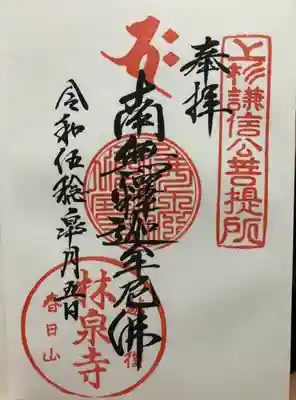 上杉謙信公菩提所
奉拝
南無釋迦牟尼佛
令和伍稔皐月五日
林泉寺
春日山